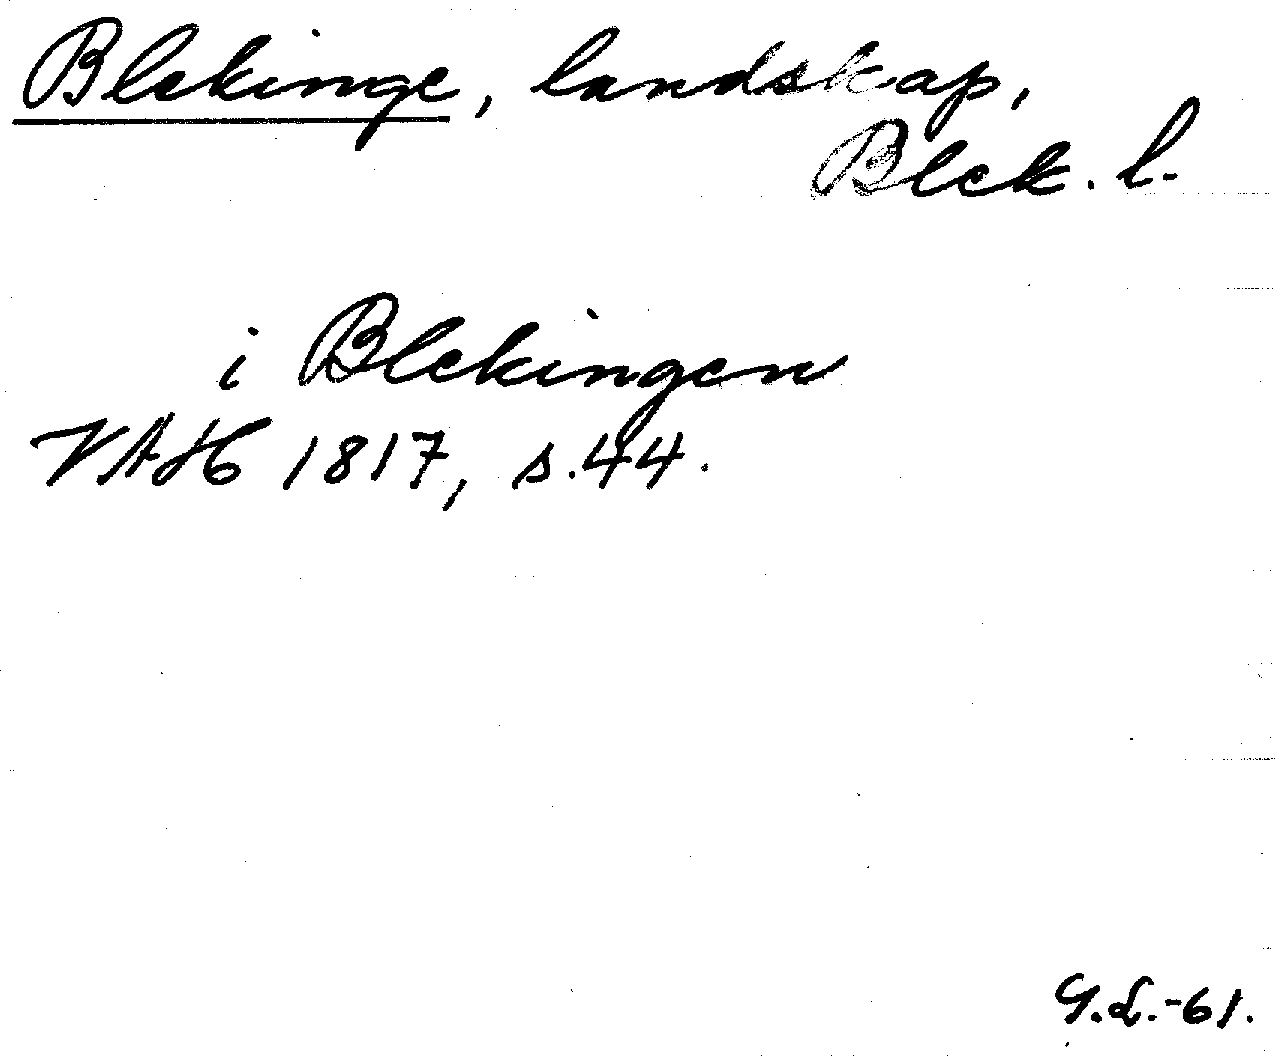 Blekinge, landskap,
Blek. l.
i Blekingen
VAH 1817, s. 44.
G.L.-61.